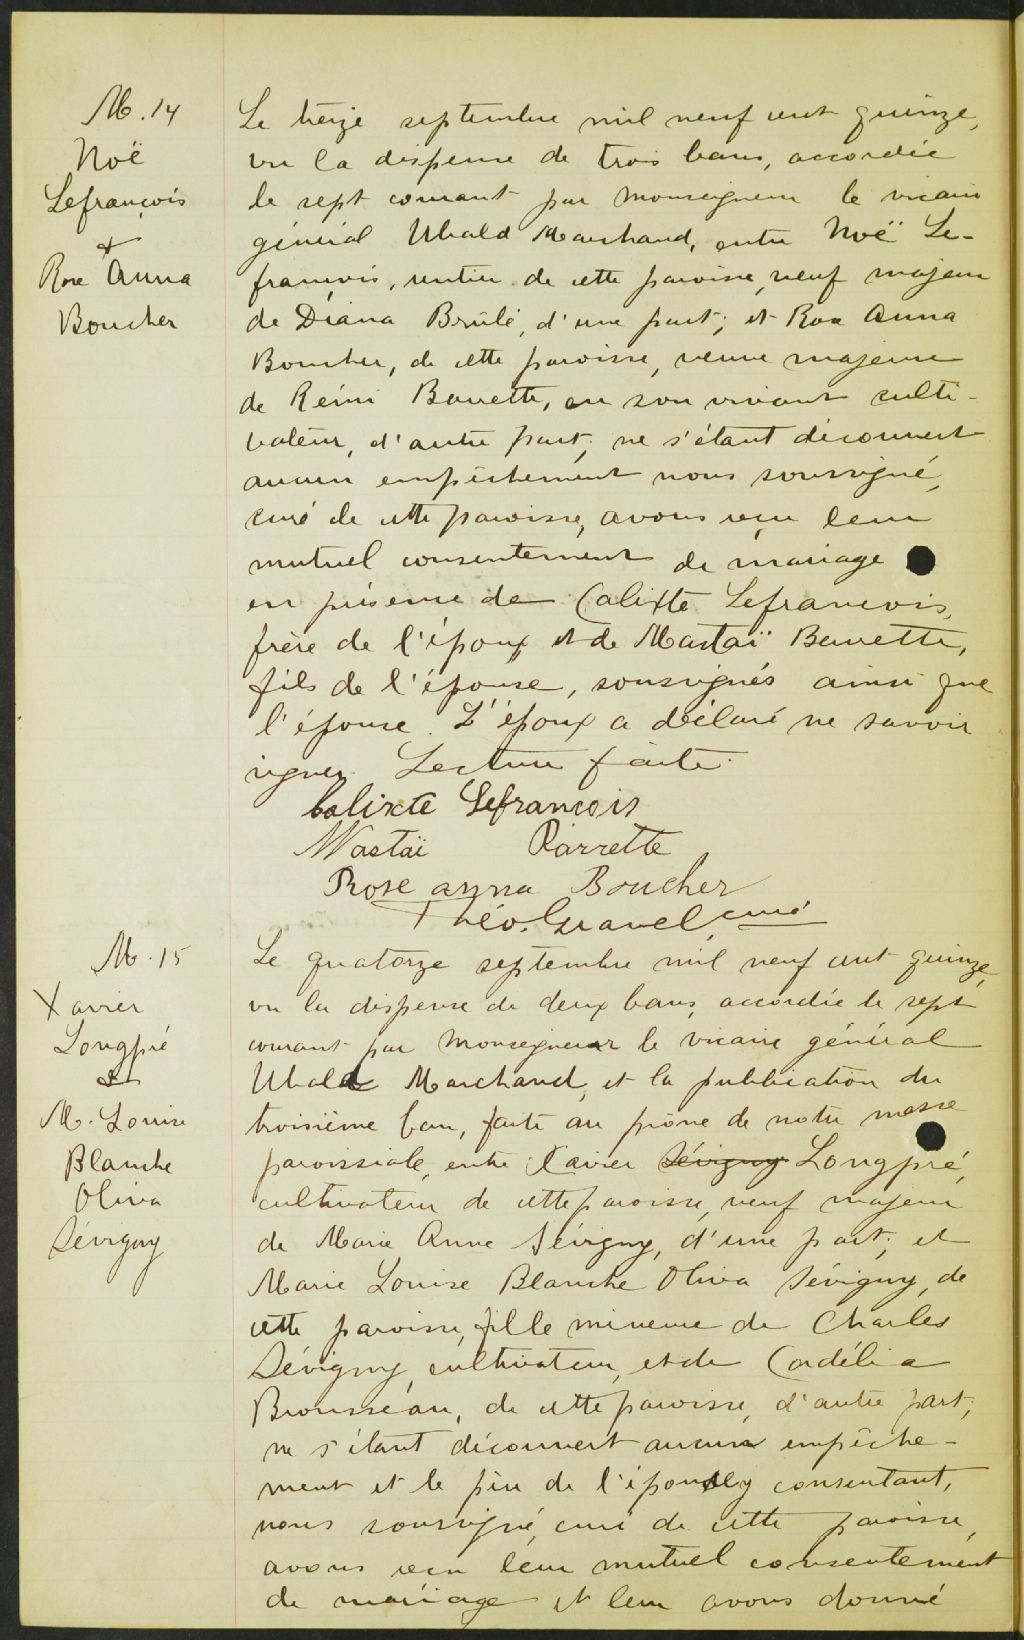 M. 14
Noë
Lefrançois
&
Rose Anna
Boucher
Le treize septembre mil neuf cent quinze,
vu la dispense de trois bans, accordée
le sept courant par Monseigneur le vicaire
général Ubald Marchand, entre Noë Le-
françois, rentier de cette paroisse, veuf majeur
de Diana Brûlé, d'une part; et Rose Anna
Boucher, de cette paroisse, veuve majeure
de Rémi Barrette, en son vivant culti-
vateur, d'autre part; ne s'étant découvert
aucun empêchement nous soussigné,
curé de cette paroisse, avons reçu leur
mutuel consentement de mariage
en présence de Calixte Lefrancois,
frère de l'époux et de Mastaï Barrette,
fils de l'épouse, soussignés ainsi que
l'épouse. L'époux a déclaré ne savoir
signer. Lecture faite.
Calixte Lefrancois
Mastaï Barrette
Rose anna Boucher
Théo. Gravel, curé
M. 15
Xavier
Longpré
&
M. Louise
Blanche
Oliva
Sévigny
Le quatorze septembre mil neuf cent quinze,
vu la dispense de deux bans, accordée le sept
courant par Monseigneur le vicaire général
Ubald Marchand, et la publication du
troisième ban, faite au prône de notre messe
paroissiale, entre Xavier Sévigny Longpré,
cultivateur de cette paroisse, veuf majeur
de Marie Anne Sévigny, d'une part; et
Marie Louise Blanche Oliva Sévigny, de
cette paroisse, fille mineure de Charles
Sévigny, cultivateur, et de Cordélia
Brousseau, de cette paroisse, d'autre part;
ne s'étant découvert aucun empêche-
ment et le père de l'épouse y consentant,
nous soussigné, curé de cette paroisse,
avons reçu leur mutuel consentement
de mariage et leur avons donné